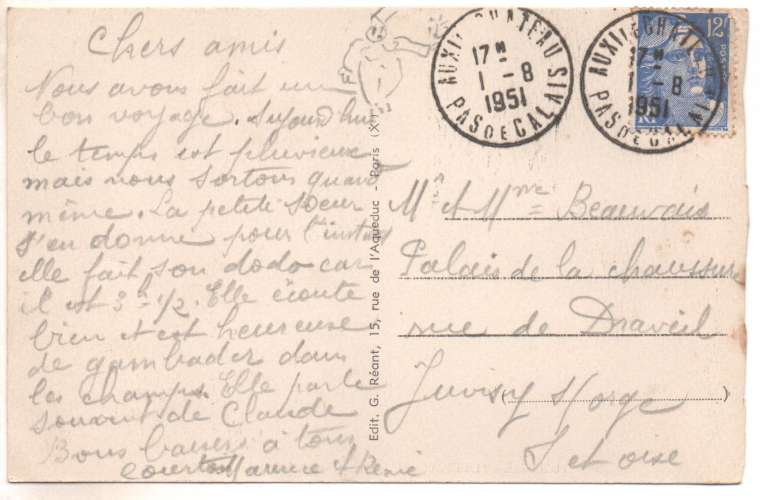 Chers amis
Nous avons fait un
bon voyage. Aujourd'hui
le temps est pluvieux
mais nous sortons quand
même. La petite soeur
s'en donne pour l'instant
elle fait son dodo car
il est 3h 1/2. Elle écoute
bien et est heureuse
de gambader dans
les champs. Elle parle
souvent de Claude
Bons baisers à tous
et René
Edit. G. Réant, 15, rue de l'Aqueduc - Paris (X
AUXI-CHATEAU
17H
1 - 8
1951
PAS DE CALAIS
AUXI CHATEAU
17H
1 - 8
1951
PAS DE CALAIS
12F
Mr et Mme Beauvais
Palais de la chaussure
rue de Draveil
Juvisy s/orge
S et oise